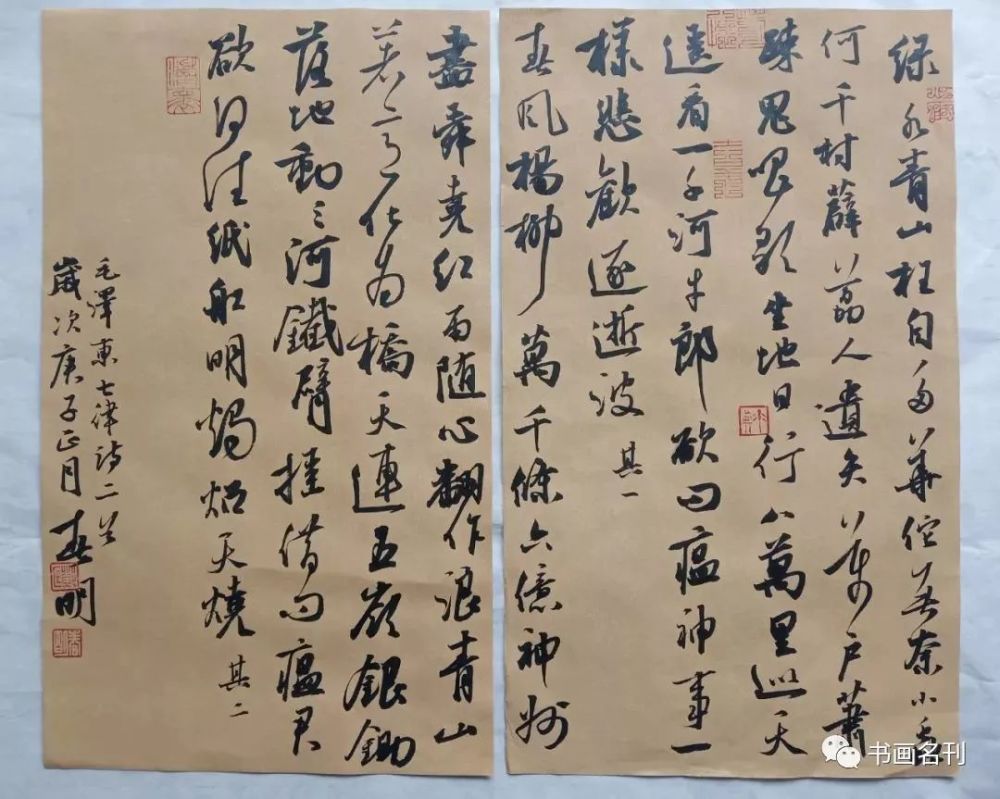 绿水青山枉自多華佗无奈小虫
何千村薜荔人遺矢万户蕭
疎鬼唱歌坐地日行八萬里巡天
遥看一千河牛郎欲问瘟神事一
樣悲歡逐逝波 其一
春风楊柳萬千條六億神州
盡舜堯红雨随心翻作浪青山
着意化为橋天連五嶺銀鋤
落地動三河鐵臂摇借问瘟君
欲何往纸船明燭炤天燒 其二
毛澤東七律诗二首
歲次庚子正月 春明
书画名刊